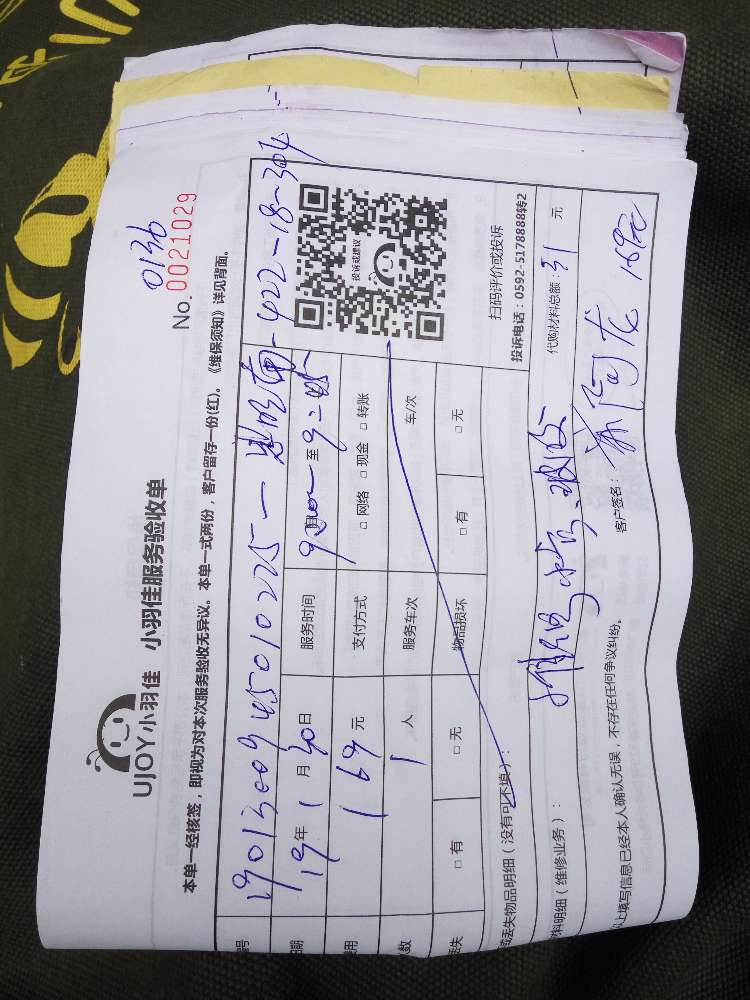 UJOY小羽佳 小羽佳服务验收单
0136
No.0021029
本单一经核签，即视为对本次服务验收无异议。本单一式两份，客户留存一份(红)。《维保须知》详见背面。
编号 1901300945010225一 422-18-304
日期 19年1月30日 服务时间 9:00 至 9:45
费用 169元 支付方式 □ 网络 □ 现金 □ 转账
人数 1人 服务车次 车/次
丢失 □ 有 □ 无 物品损坏 □ 有 □ 无
投诉或建议
扫码评价或投诉
投诉电话：0592-5178888转2
或丢失物品明细（没有可不填）：
材料明细（维修业务）： 代购材料总额：31 元
以上填写信息已经本人确认无误，不存在任何争议纠纷。 客户签名： 169元